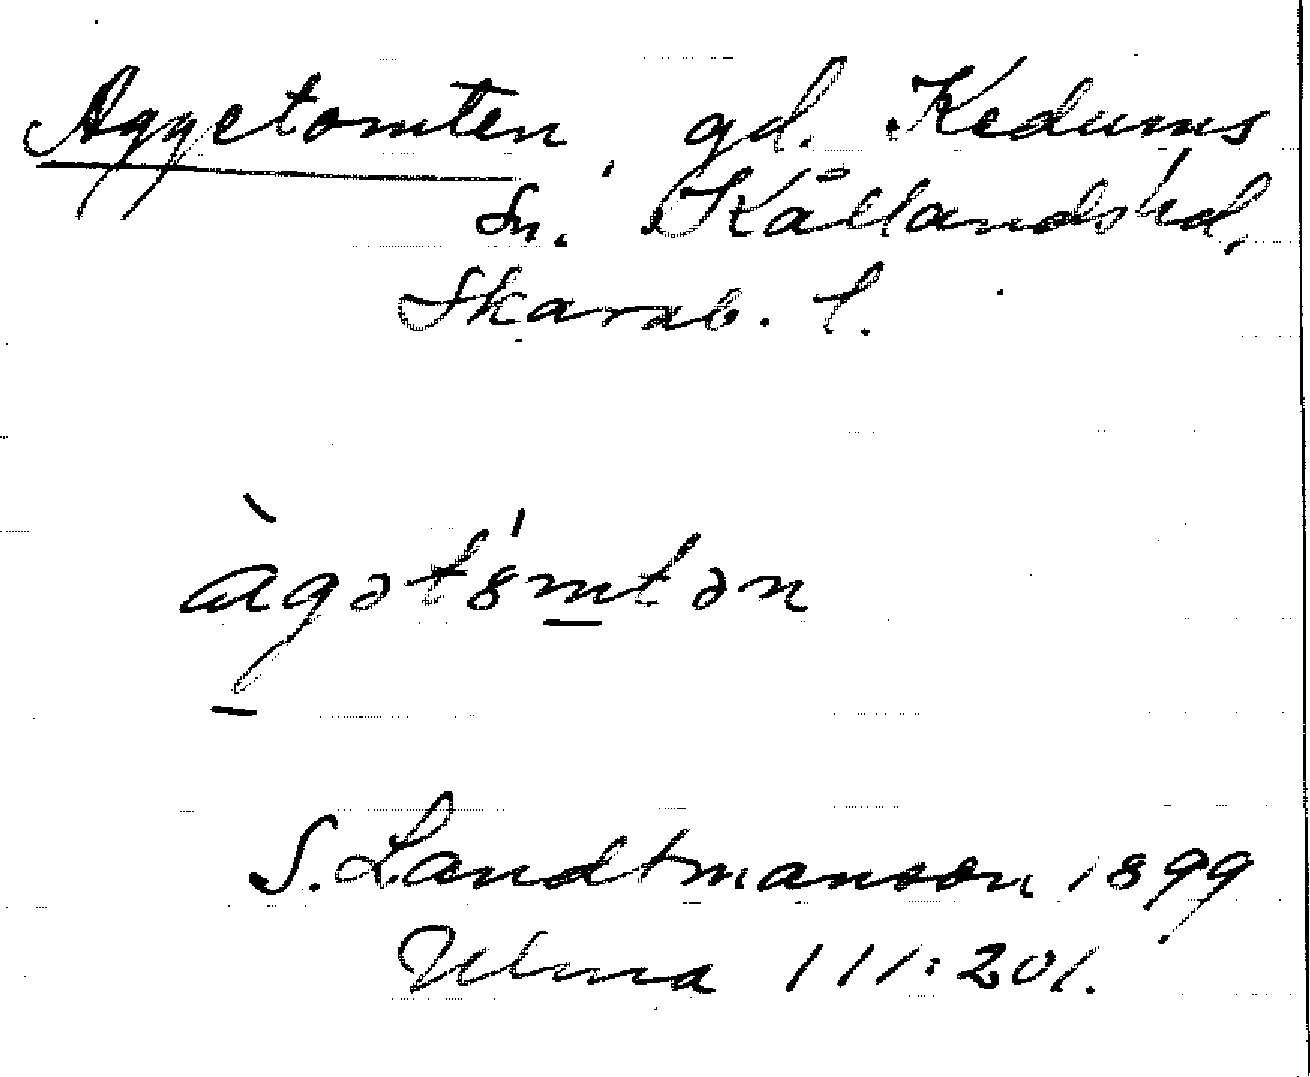 Aggetomten, gd. Kedums
Sn. Kållandshd,
Skarab. l.
àgətȣ́mtən
S. Landtmanson 1899
Ulma 111:201.